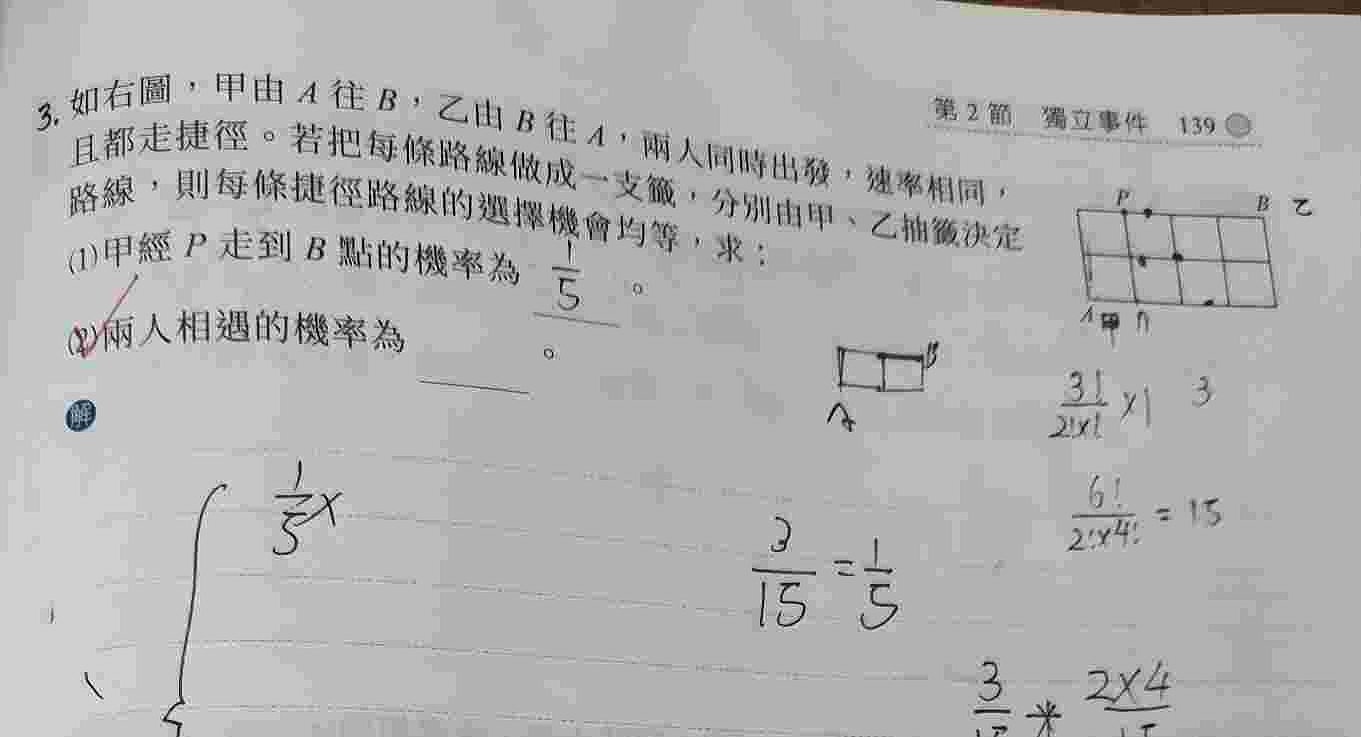 第 2 節 獨立事件 139
3. 如右圖，甲由 A 往 B，乙由 B 往 A，兩人同時出發，速率相同，
且都走捷徑。若把每條路線做成一支籤，分別由甲、乙抽籤決定
路線，則每條捷徑路線的選擇機會均等，求：
(1)甲經 P 走到 B 點的機率為 1/5 。
(2)兩人相遇的機率為 。
P B 乙
A 甲
B
A
3!/2!x1! x1 3
解
6!/2!x4! = 15
1/5 x
3/15 = 1/5
3 2x4